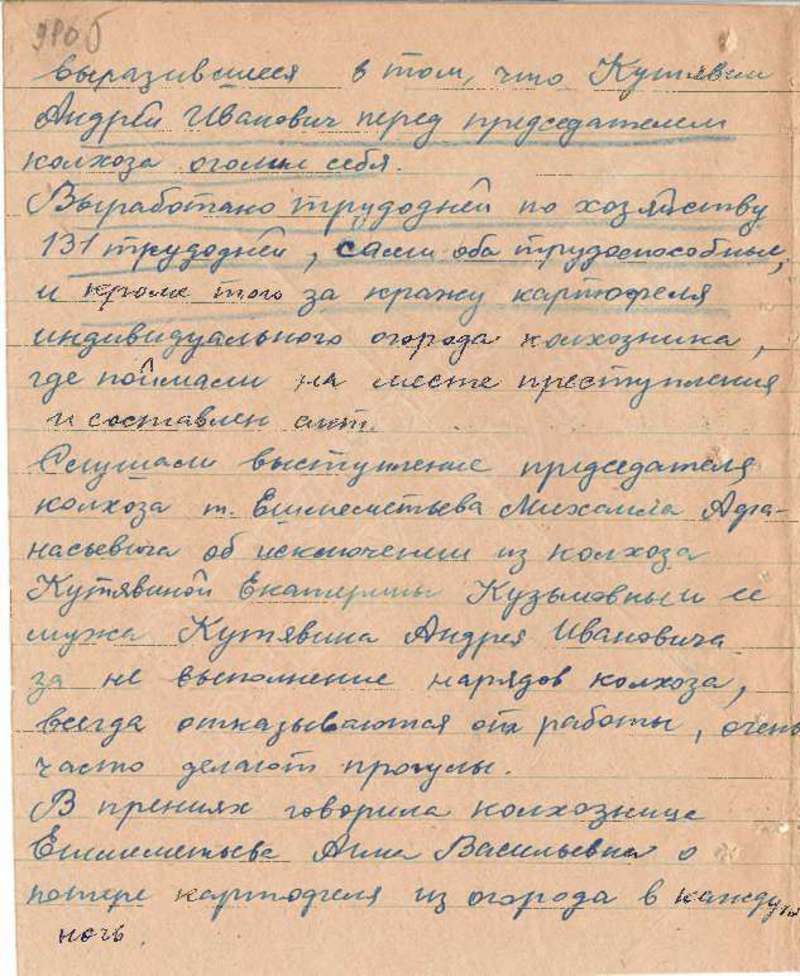 выразившиеся в том, что Кутявин
Андрей Иванович перед председателем
колхоза оголил себя.
Выработано трудодней по хозяйству
131 трудодней, сами оба трудоспособные,
и кроме того за кражу картофеля
индивидуального огорода колхозника,
где поймали на месте преступления
и составлен акт.
Слушали выступление председателя
колхоза т. Ешмеметьева Михаила Афа-
насьевича об исключении из колхоза
Кутявиной Екатерины Кузьмовны и ее
мужа Кутявина Андрея Ивановича
за не выполнение нарядов колхоза,
всегда отказываются от работы, очень
часто делают прогулы.
В прениях говорила колхознице
Ешмеметьева Анна Васильевна о
потере картофеля из огорода в каждую
ночь.